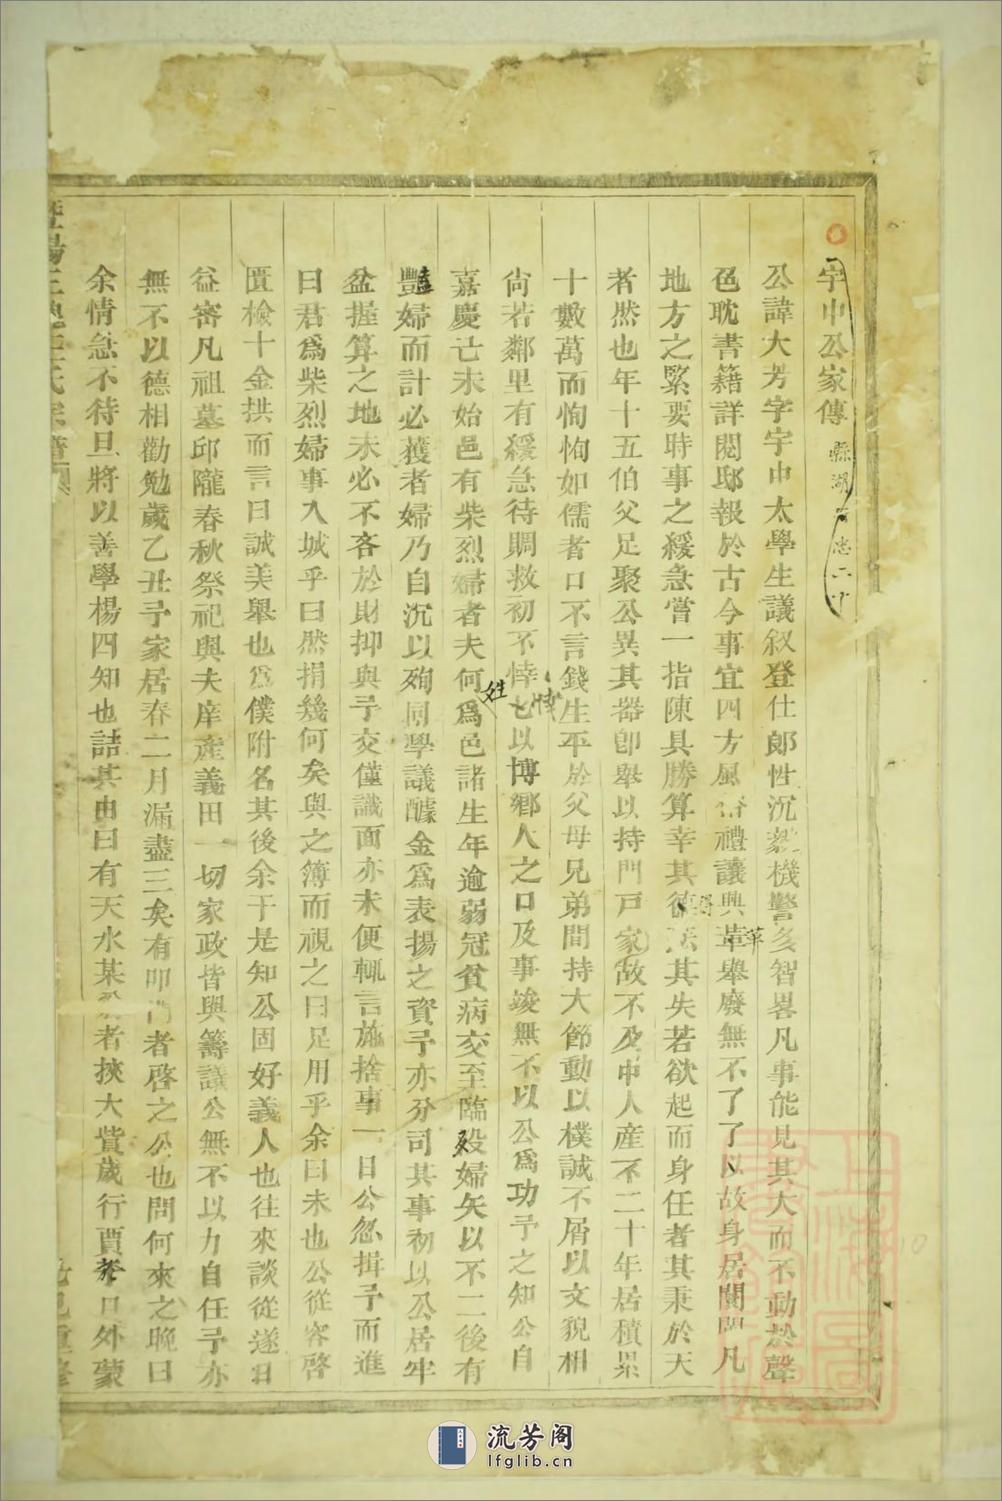 宇中公家傳
公諱大芳字宇中太學生議叙登仕郎性沉毅機警多智畧凡事能見其大而不動於聲
色耽書籍詳閱邸報於古今事宜四方風俗禮讓興革舉廢無不了了以故身居闤闠凡
地方之緊要時事之緩急嘗一指陳具勝算幸其得法其失若欲起而身任者其秉於天
者然也年十五伯父足聚公異其器卽舉以持門戸家故不及中人産不二十年居積累
十數萬而恂恂如儒者口不言錢生平於父母兄弟間持大節動以樸誠不屑以文貌相
尙若鄰里有緩急待賙救初不悻悻以博鄉人之口及事竣無不以公爲功予之知公自
嘉慶己未始邑有柴烈婦者夫何爲邑諸生年逾弱冠貧病交至臨殁婦矢以不二後有
豔婦而計必獲者婦乃自沉以殉同學議醵金爲表揚之資予亦分司其事初以公居牢
盆握算之地未必不吝於財抑與予交僅識面亦未便輒言施捨事一日公忽揖予而進
曰君爲柴烈婦事入城乎曰然捐幾何矣與之簿而視之曰足用乎余曰未也公從容啓
匱檢十金拱而言曰誠美舉也爲僕附名其後余于是知公固好義人也往來談從遂日
益審凡祖墓邱隴春秋祭祀與夫庠産義田一切家政皆與籌議公無不以力自任予亦
無不以德相勸勉歲乙丑予家居春二月漏盡三矣有叩門者啓之公也問何來之晚曰
余情急不待旦將以善學楊四知也詰其由曰有天水某 者挾大貲歲行賈於口外蒙
氏宗譜
重修
流芳阁
lfglib.cn